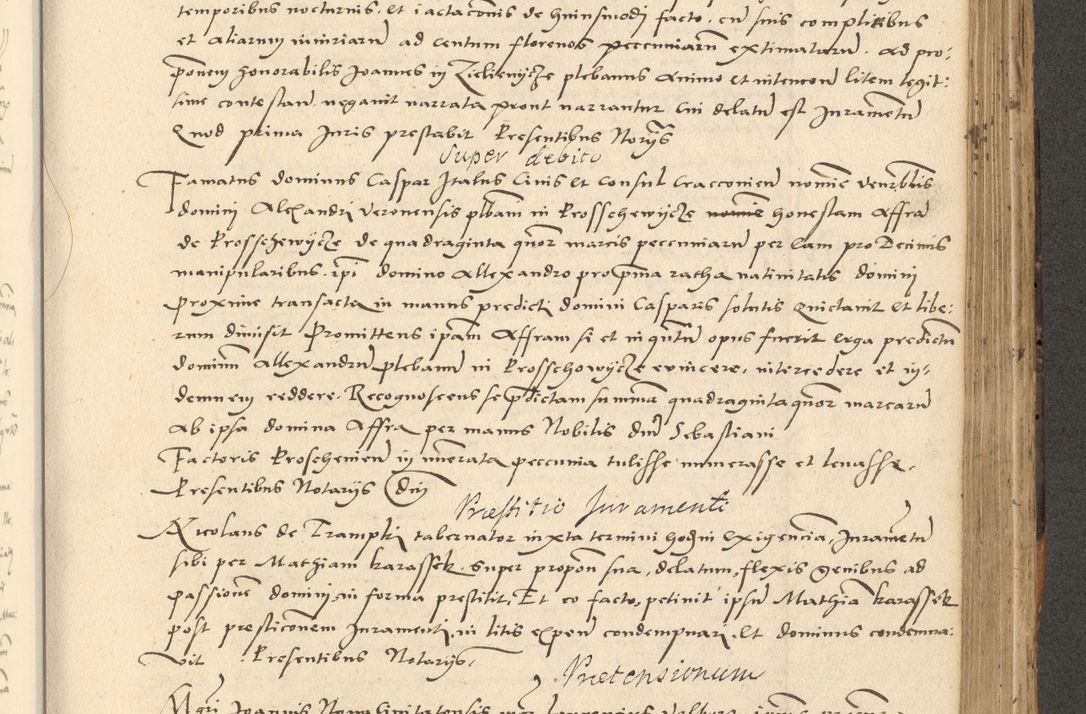 temporibus nocturnis. et iactaconis de huiusmodi facto. cu suis complicibus
et aliarum iniuriaru ad centum florenos peccuniaru extimataru. ad pro:
ponem honorabilis Joannes in Zielienycze plebanus animo et intencon litem legit:
time contestan negavit narrata pront narrantur cui delatu est Jurametu
Quod prima Juris prestabit Presentibus Noriis
Super debito
Famatus dominus Caspar Italus Civis et Consul Cracconien nomie venrblis
domini Alexandri veronensis plbani in Prosschewycze honestam Affra
de Prosschewycze de quadraginta quor marcis peccuniaru per eam pro Decimis
manipularibus. ipi domino Allexandro pro prima ratha nativitatis domini
Proxime transacta in manus predicti domini Casparis solutis Quictavit et libe:
rum dimisit Promittens ipam Affram si et in qutu opus fuerit erga predictu
dominu Allexandru plebanu in Prosschowycze evincere. intercedere et in-
demnem reddere. Recognoscens se pdictam summa quadraginta quor marcaru
ab ipsa domina Affra per manus Nobilis dni Sebastiani
Factoris Proschenien in numerata peccunia tulisse numerasse et levasse.
Presentibus Notariis dni
Præstitio Juramenti
Nicolaus de Trampki tabernator iuxta termini hodni exigencia, Jurametu
sibi per Mathiam karassek. super propon sua, delatum, flexis genibus ad
passione domini, in forma prestitit, Et eo facto, petiuit ipsu Mathia karassek
post presticonem Juramenti, in litis expen condempnari. Et dominus condemna:
vit. Presentibus Notariis.
Prætensionum
Joannis